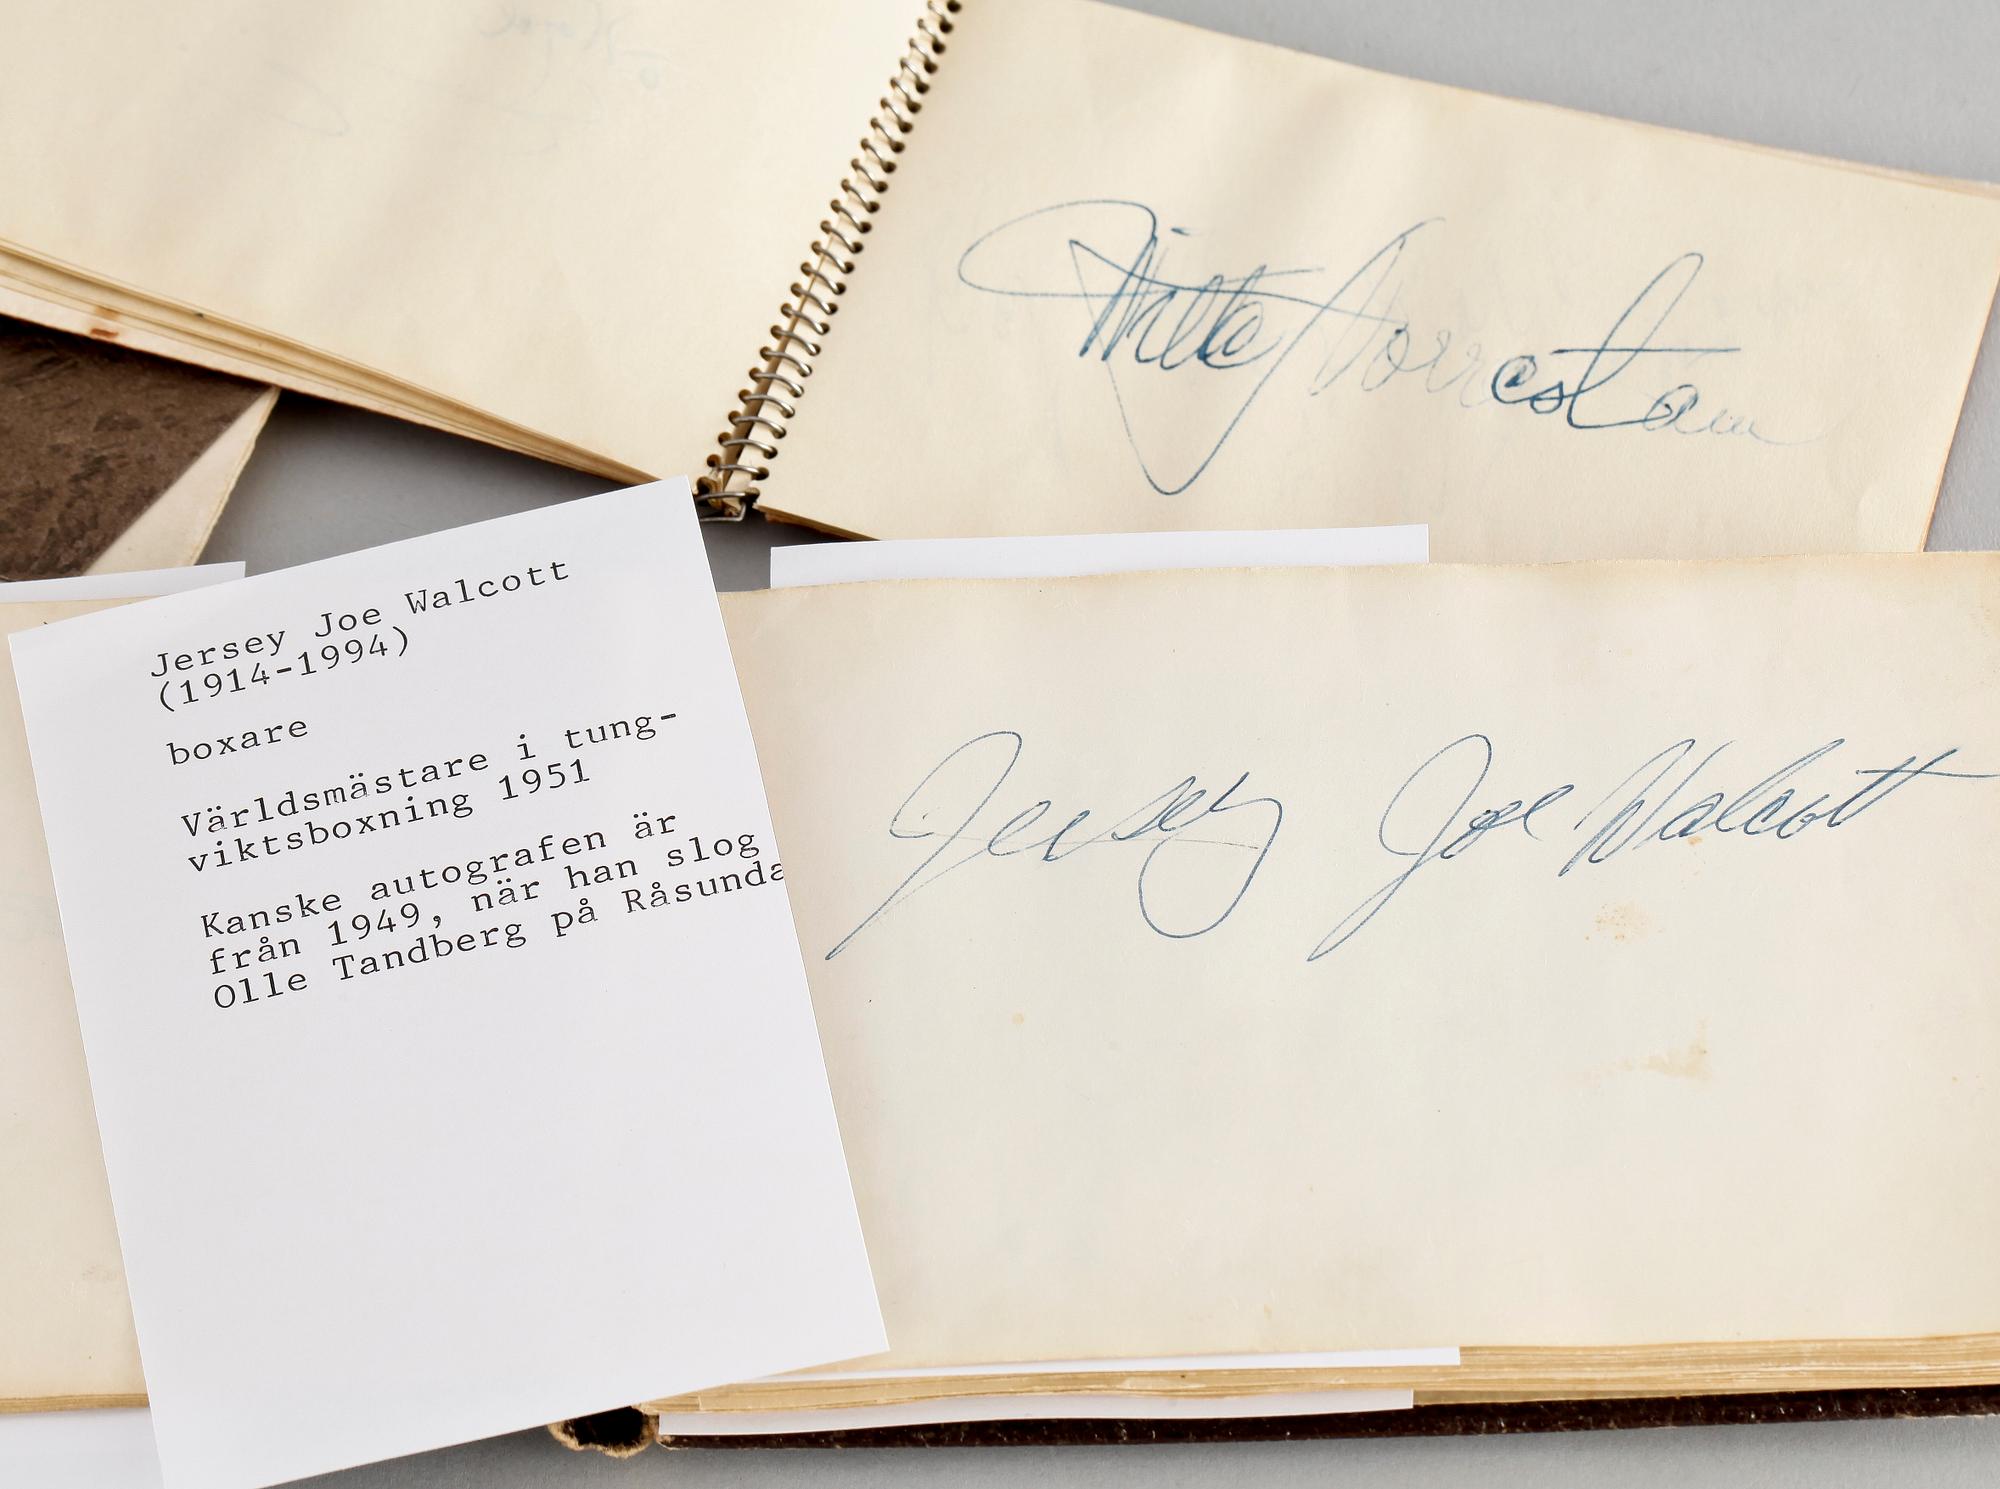 Jersey Joe Walcott
(1914-1994)
boxare
Världsmästare i tung-
viktsboxning 1951
Kanske autografen är
från 1949, när han slog
Olle Tandberg på Råsunda
Jersey Joe Walcott